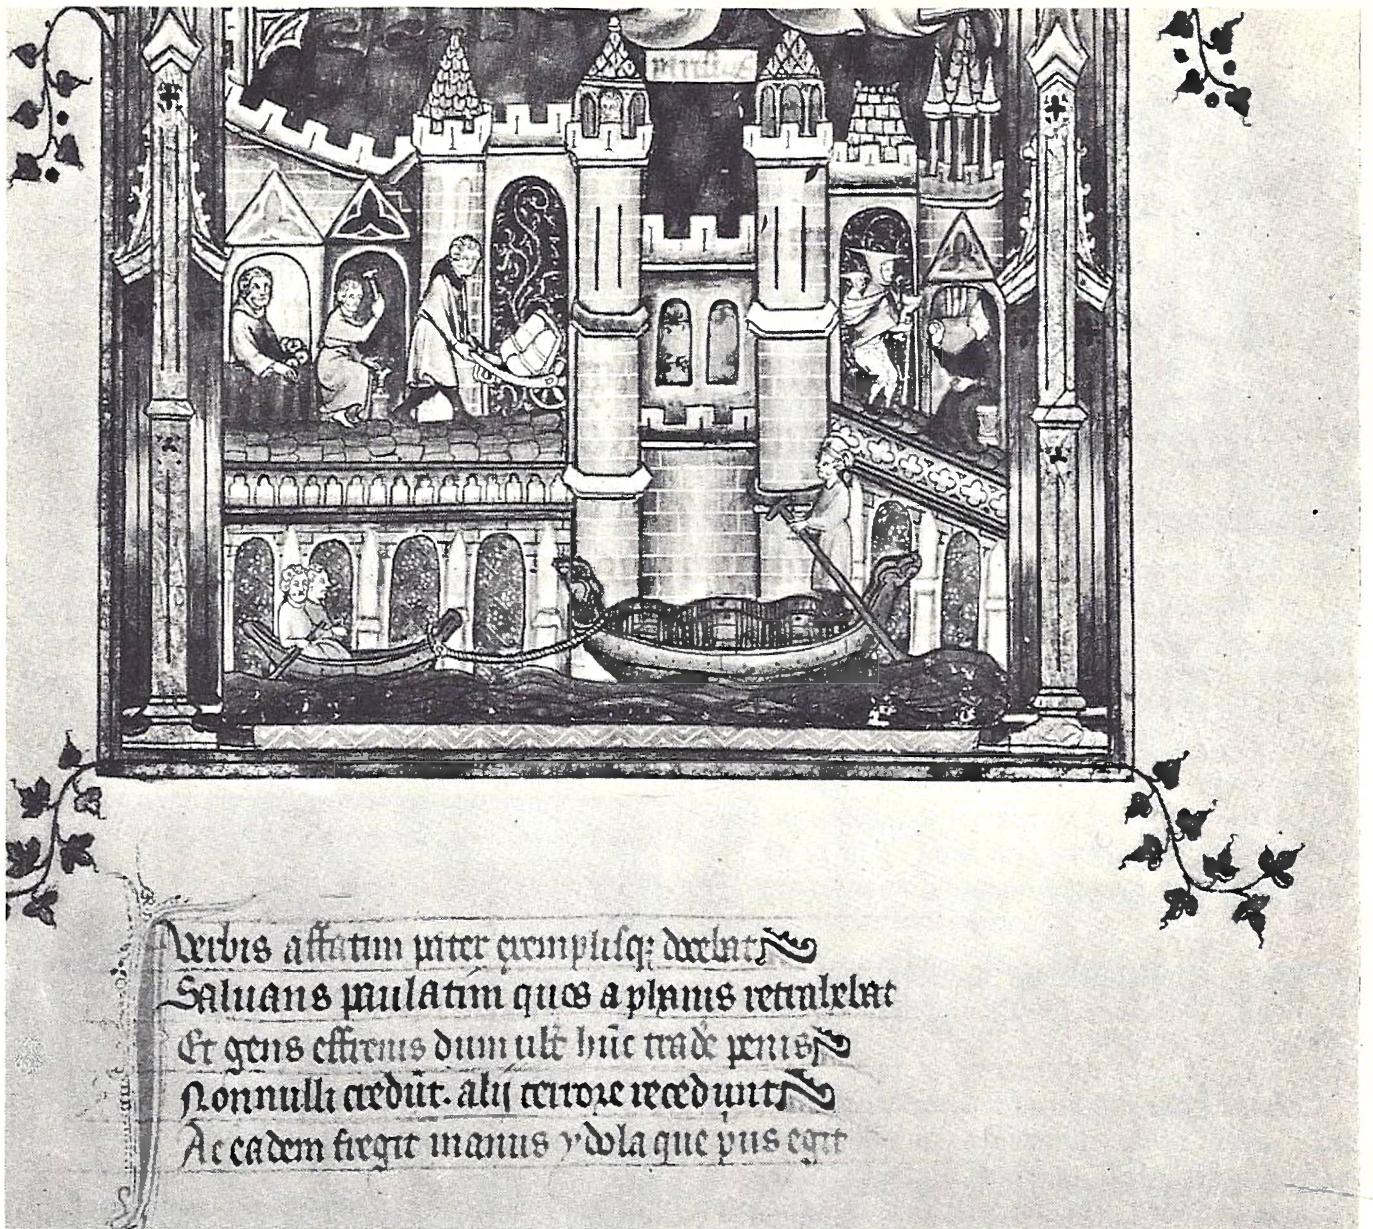 Verbis affatim pater exemplisq; docebat
Saluans paulatim quos a phanis retrahebat
Et gens effrenis dum ult hūc trade penis
Nonnulli credūt. alij terrore recedunt
Ac eadem fregit manus ydola que pus egit